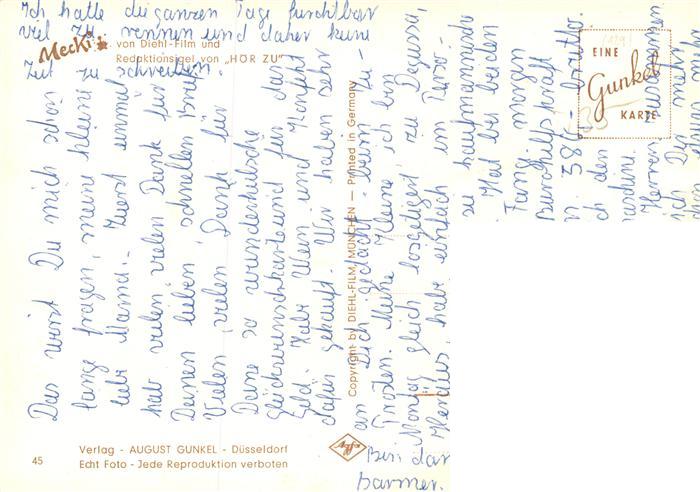 Ich hatte die ganzen Tage furchtbar
viel zu rennen und daher keine
Zeit zu schreiben.
Mecki
von Diehl-Film und
Redaktionsigel von „HÖR ZU"
EINE
Gunkel
KARTE
Das wirst Du mich schon
lange fragen, meine kleine
liebe Mama. Zuerst einmal
hab vielen vielen Dank für
Deinen lieben schnellen Brief.
Vielen, vielen Dank für
Deine so wunderhübsche
Glückwunschkarte und für das
Geld. Habe Wein und Konfekt
dafür gekauft. Wir haben sehr
an Dich gedacht beim Zu-
Prosten. Meine Kleine ich bin
Montag gleich losgetigert zu Degussa,
Heraus, habe einfach im Perso-
zu kaufmännische
Hat bei beiden
Fang morgen
Bürohilfskraft
385,- brutto.
ch den
Herren zusammen
ich Dir mehr
Copyright by DIEHL-FILM, MÜNCHEN — Printed in Germany
Verlag - AUGUST GUNKEL - Düsseldorf
45
Echt Foto - Jede Reproduktion verboten
Agfa
Bin dar
barmer.